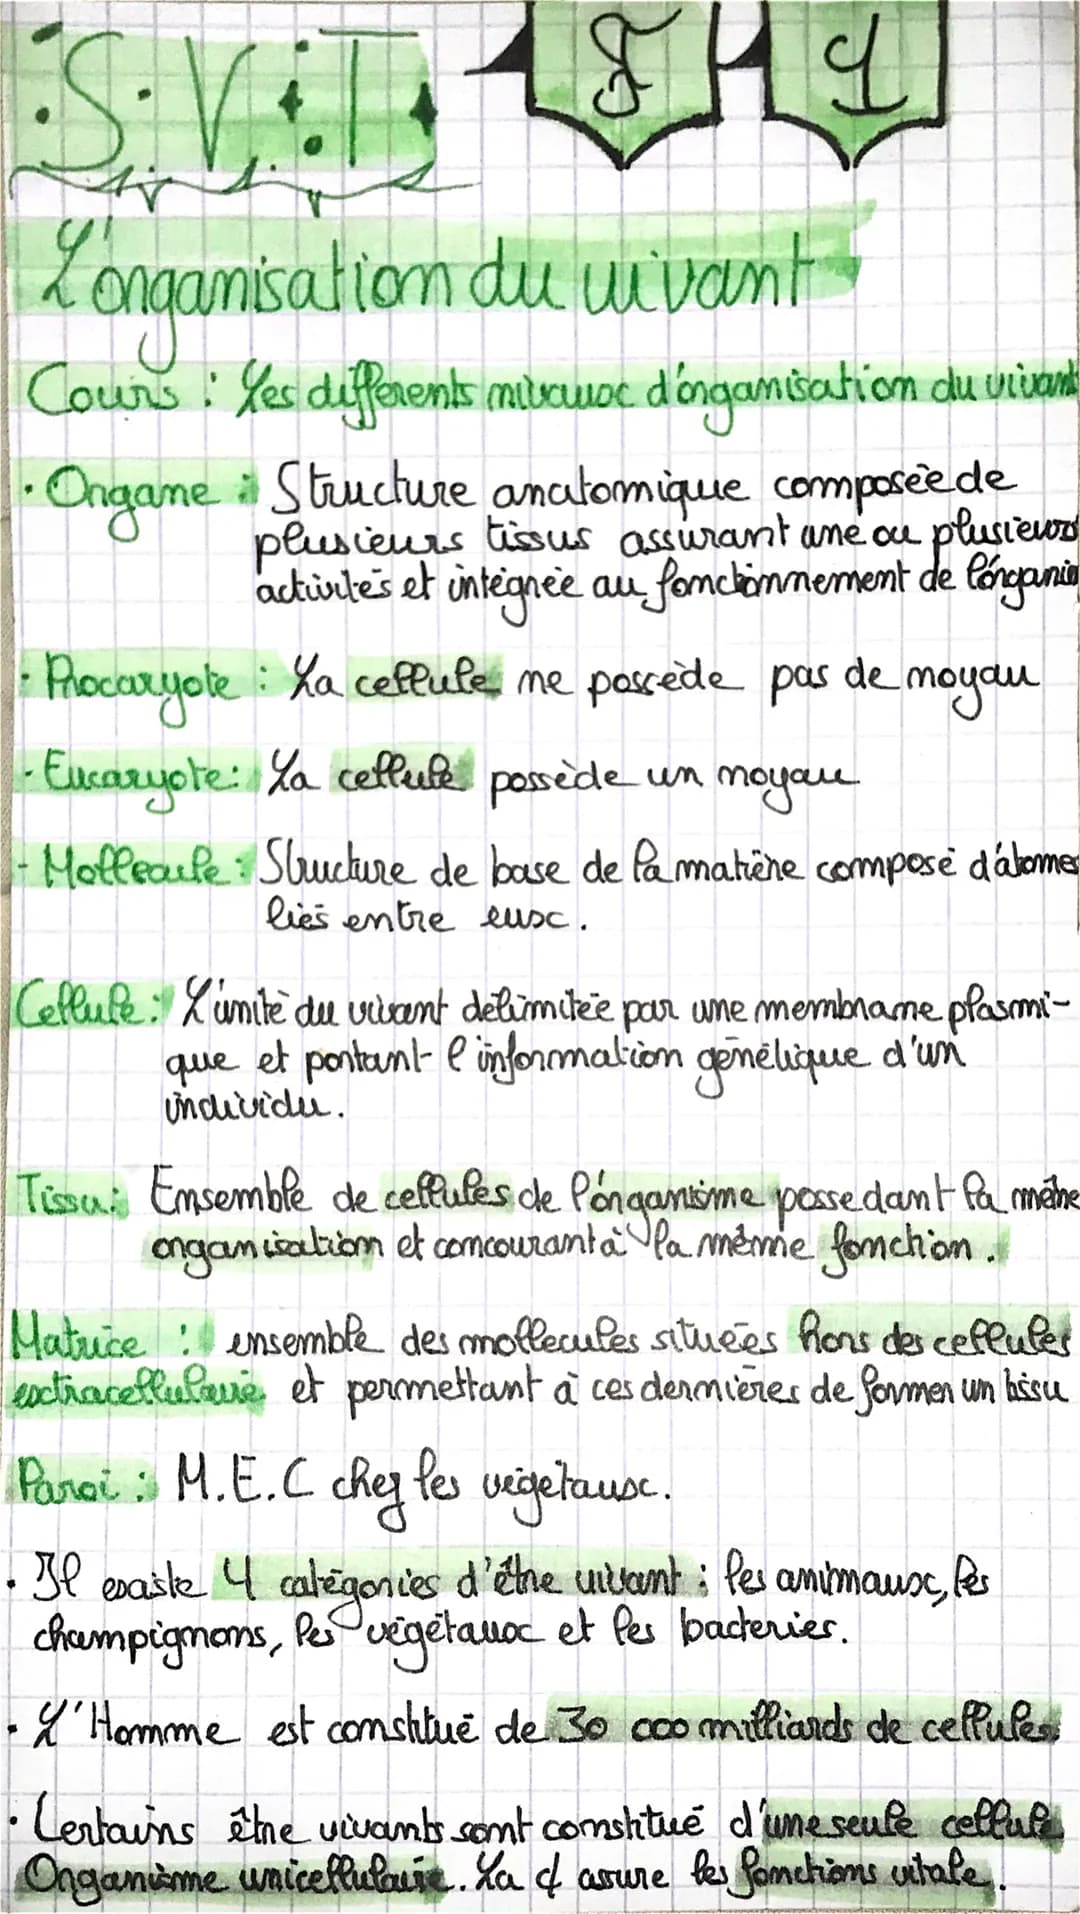 S.V.T
F 1
L'organisation du vivant
Cours : Les differents niveaux d'organisation du vivant
· Organe : Structure anatomique composée de
plusieurs tissus assurant une ou plusieurs
activités et intégrée au fonctionnement de l'organis
· Procaryote : La cellule ne possède pas de noyau
· Eucaryote : La cellule possède un noyau
- Mollecule : Structure de base de la matière composé d'atomes
liés entre eux.
Cellule : L'unité du vivant délimitée par une membrane plasmi-
que et portant l'information génétique d'un
individu.
Tissu : Ensemble de cellules de l'organisme possedant la même
organisation et concourant à la même fonction.
Matrice : ensemble des mollecules situées hors des cellules
extracellulaire et permettant à ces dernières de former un tissu
Paroi : M.E.C chez les végétaux.
· Il existe 4 catégories d'être vivant : les animaux, les
champignons, les végétaux et les bacteries.
· L'Homme est constitué de 30 000 milliards de cellules
· Certains être vivants sont constitué d'une seule cellule
Organisme unicellulaire. La ¢ assure les fonctions vitale.